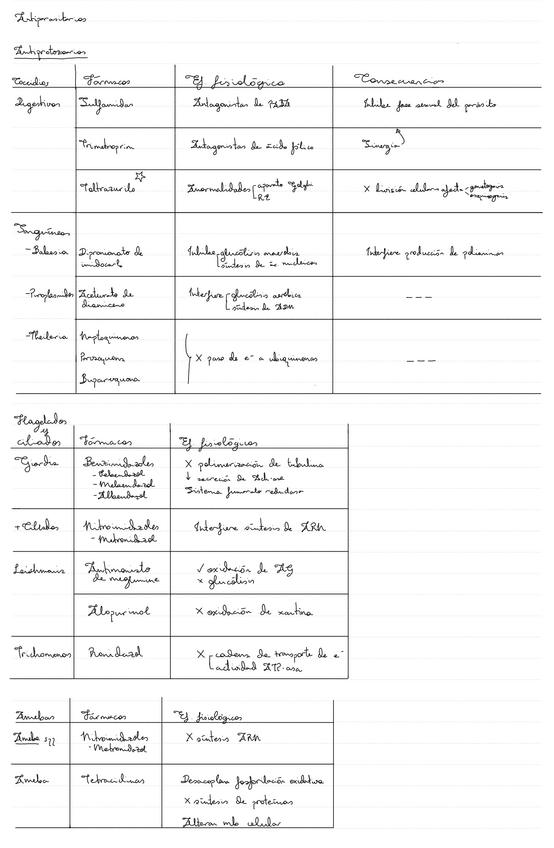 Antiparasitarios
Antiprotozoarios
Coccidios Fármacos Ef fisiológico Consecuencias
Digestivos Sulfamidas Antagonistas de PABA Inhibe fase sexual del parásito
Trimetroprim Antagonistas de ácido fólico Sinergia
Toltrazurilo Anormalidades aparato Golgi X división celular afecta
RE
Sanguíneos
-Babesia Dipropionato de Inhibe glucólisis anaerobia Interfiere producción de poliaminas
imidocarb síntesis de ác nucleicos
-Piroplasmidos Aceturato de Interfiere glucólisis aeróbica ---
diaminaceno síntesis de ADN
-Theileria Naptoquinonas
Parvaquona X paso de e- a ubiquinonas ---
Buparvaquona
Flagelados
y
ciliados Fármacos Ef fisiológicos
Giardia Benzimidazoles X polimerización de tubulina
- Febendazol ↓ secreción de Ach-asa
- Mebendazol Sistema fumarato reductasa
- Albendazol
+ Ciliados Nitroimidazoles Interfiere síntesis de ARN
- Metronidazol
Leishmania Antimoniato ✓ oxidación de AG
de meglumine x glucólisis
Alopurinol X oxidación de xantina
Trichomonas Ronidazol X cadena de transporte de e-
actividad ATP-asa
Amebas Fármacos Ef. fisiológicos
Ameba Nitroimidazoles X síntesis ARN
- Metronidazol
Ameba Tetraciclinas Desacoplan fosforilación oxidativa
X síntesis de proteínas
Alteran mb celular